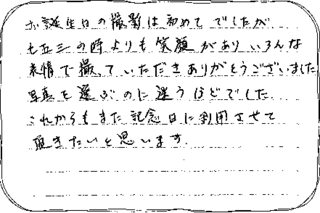 お誕生日の撮影は初めてでしたが
七五三の時よりも笑顔がありいろんな
表情で撮っていただきありがとうございました
写真を選ぶのに迷うほどでした
これからもまた記念日に利用させて
頂きたいと思います.